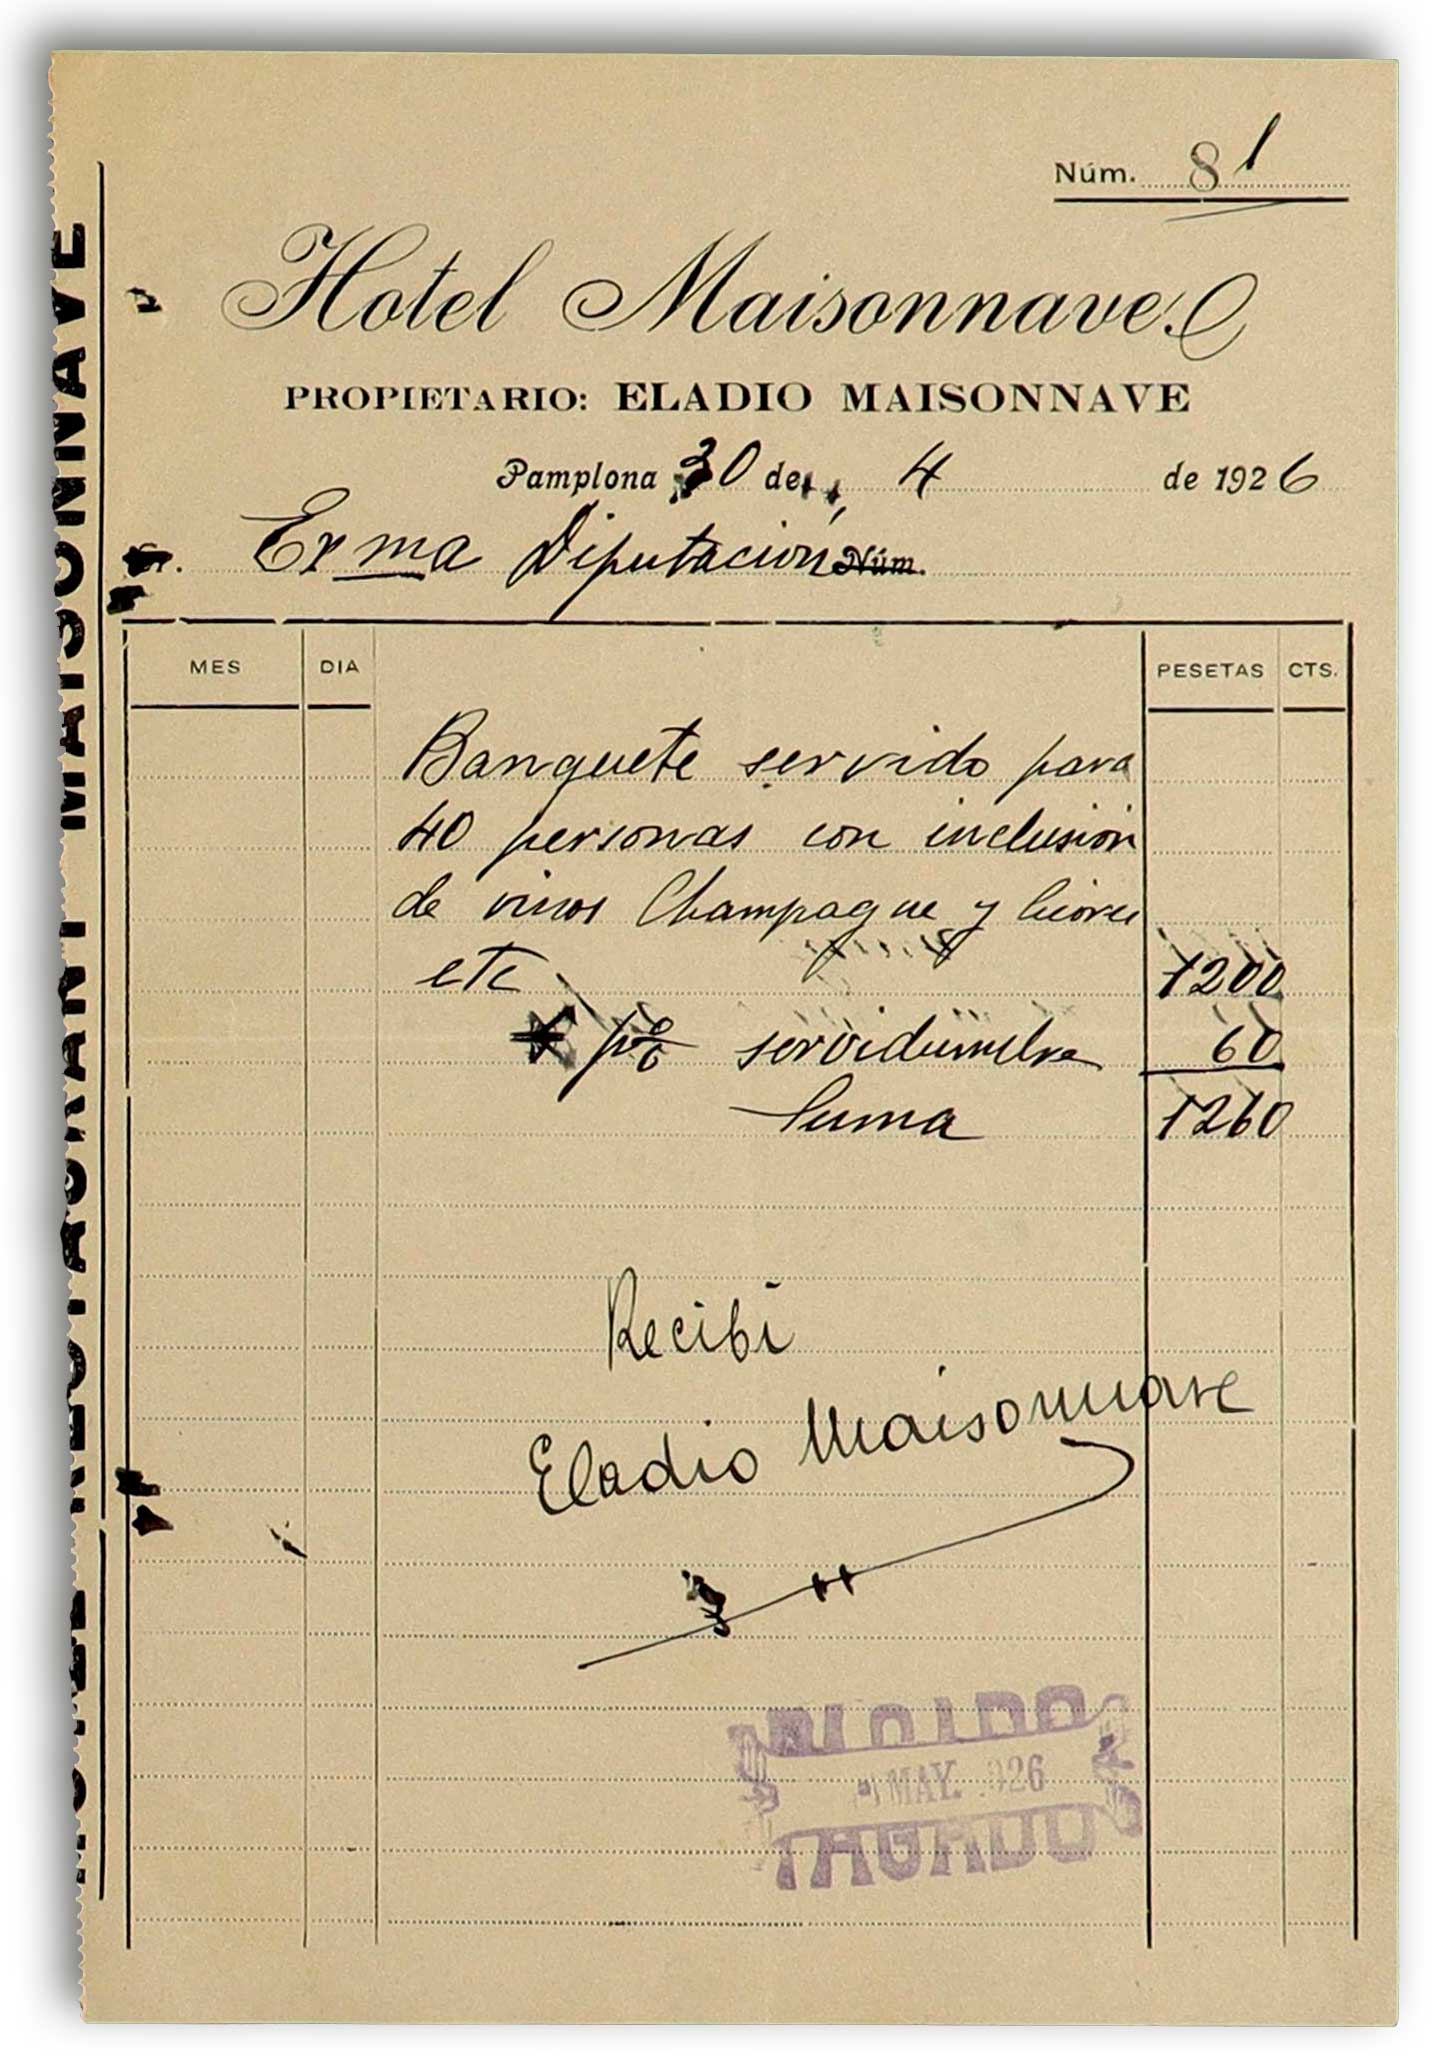 Núm. 81
Hotel Maisonnave
PROPIETARIO: ELADIO MAISONNAVE
Pamplona 30 de 4 de 1926
Sr. Exma Diputación Núm.
MES DIA PESETAS CTS.
Banquete servido para
40 personas con inclusión
de vinos Champagne y licores
etc 1200
servidumbre 60
Suma 1260
Recibí
Eladio Maisonnave
MAY. 926
PAGADO
HOTEL RESTAURANT MAISONNAVE